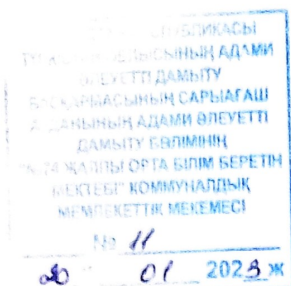 ОБЛЫСЫНЫҢ АДАМИ
ӘЛЕУЕТТІ ДАМЫТУ
БАСҚАРМАСЫНЫҢ САРЫАҒАШ
АУДАНЫНЫҢ АДАМИ ӘЛЕУЕТТІ
ДАМЫТУ БӨЛІМІНІҢ
ЖАЛПЫ ОРТА БІЛІМ БЕРЕТІН
МЕКТЕБІ" КОММУНАЛДЫҚ
МЕМЛЕКЕТТІК МЕКЕМЕСІ
№ 11
20 01 2023 ж